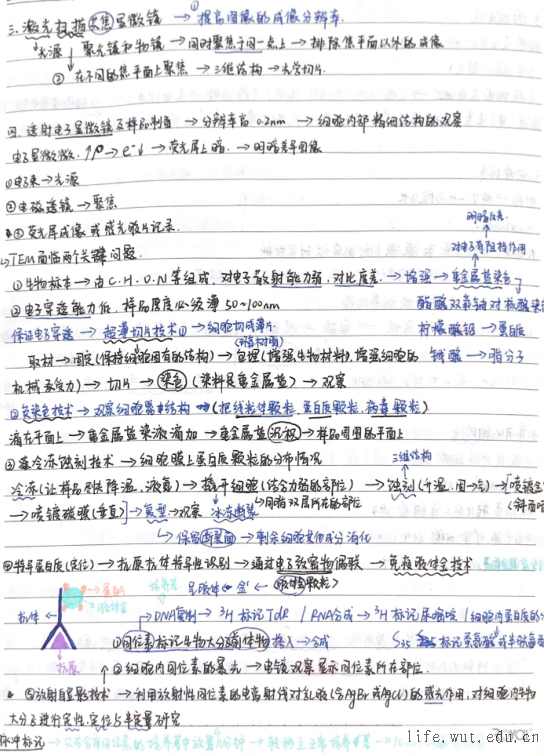 三.激光扫描共焦显微镜 → ①提高图像的成像分辨率.
光源 聚光镜和物镜→同时聚焦于同一点上→排除焦平面以外的成像
② 在不同的焦平面上聚焦→三维结构→光学切片.
四.透射电子显微镜及样品制备→分辨率高 0.2nm.→细胞内部精细结构的观察
电子显微镜. ↑ρ→e⁻↓→荧光屏上暗.→明暗差异图像
①电子束→光源
②电磁透镜→聚焦
③荧光屏成像或感光胶片记录.
明暗反差.
对电子有阻挡作用
↳TEM面临两个关键问题.
①生物标本→由C.H.O.N等组成.对电子散射能力弱.对比度差.→增强→重金属盐染色
②电子穿透能力低,样品厚度必须薄 50~100nm
醋酸双氧铀对核酸染
保证电子穿透→超薄切片技术①→细胞切成薄片.
柠檬酸铅→蛋白质
(环氧树脂)
取材→固定(保持细胞固有的结构)→包埋(增强生物材料),增强细胞的
锇酸→脂分子
机械承受力)→切片→染色(染料是重金属盐)→观察
②负染色技术→观察细胞器等结构 (把线粒体颗粒.蛋白质颗粒.病毒颗粒)
滴在平面上→重金属盐染液滴加→重金属盐沉积→样品周围的平面上
③冷冻蚀刻技术→细胞膜上蛋白质颗粒的分布情况
三维结构
冷冻(让样品剧烈降温.液氮)→撬开细胞(结合力弱的部位)→蚀刻(升温.固→气)→[喷镀
→喷镀碳膜(垂直)]→复型→观察 冰冻断裂 ↳同脂双层所在的部位
(斜面喷
↳保留断裂面→剩余细胞其他成分消化
④特异蛋白质(定位)→抗原抗体特异性识别→通过电子致密物偶联→免疫胶体金技术
呈胶体←金←(胶体金颗粒)
蛋白
胶体金
抗体
抗原
DNA复制→³H标记TdR / RNA合成→³H标记尿嘧啶 / 细胞内蛋白质的
①同位素标记生物大分子前体物 掺入→合成
S₃₅ 标记蛋氨酸或半胱氨酸
②细胞内同位素的曝光→电镜观察显示同位素所在部位.
⑤放射自显影技术→利用放射性同位素的电离射线对乳胶(含AgBr或AgCl)的感光作用,对细胞内生物
大分子进行定性.定位与半定量研究
脉冲标记
life.wut.edu.cn